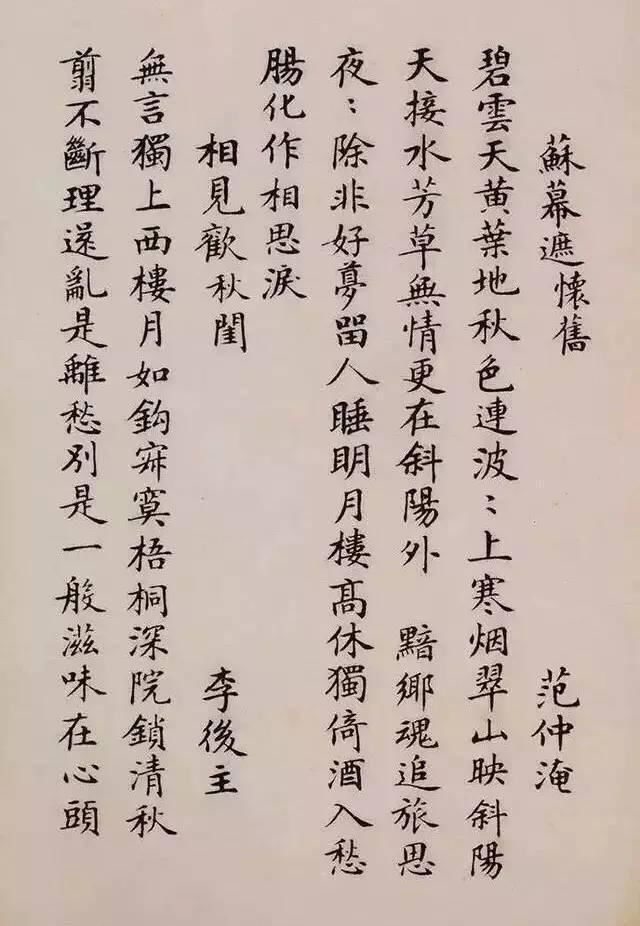 蘇幕遮懷舊 范仲淹
碧雲天黄葉地秋色連波：上寒烟翠山映斜陽
天接水芳草無情更在斜陽外 黯鄉魂追旅思
夜：除非好夢留人睡明月樓高休獨倚酒入愁
腸化作相思淚
相見歡秋閨 李後主
無言獨上西樓月如鈎寂寞梧桐深院鎖清秋
翦不斷理還亂是離愁別是一般滋味在心頭